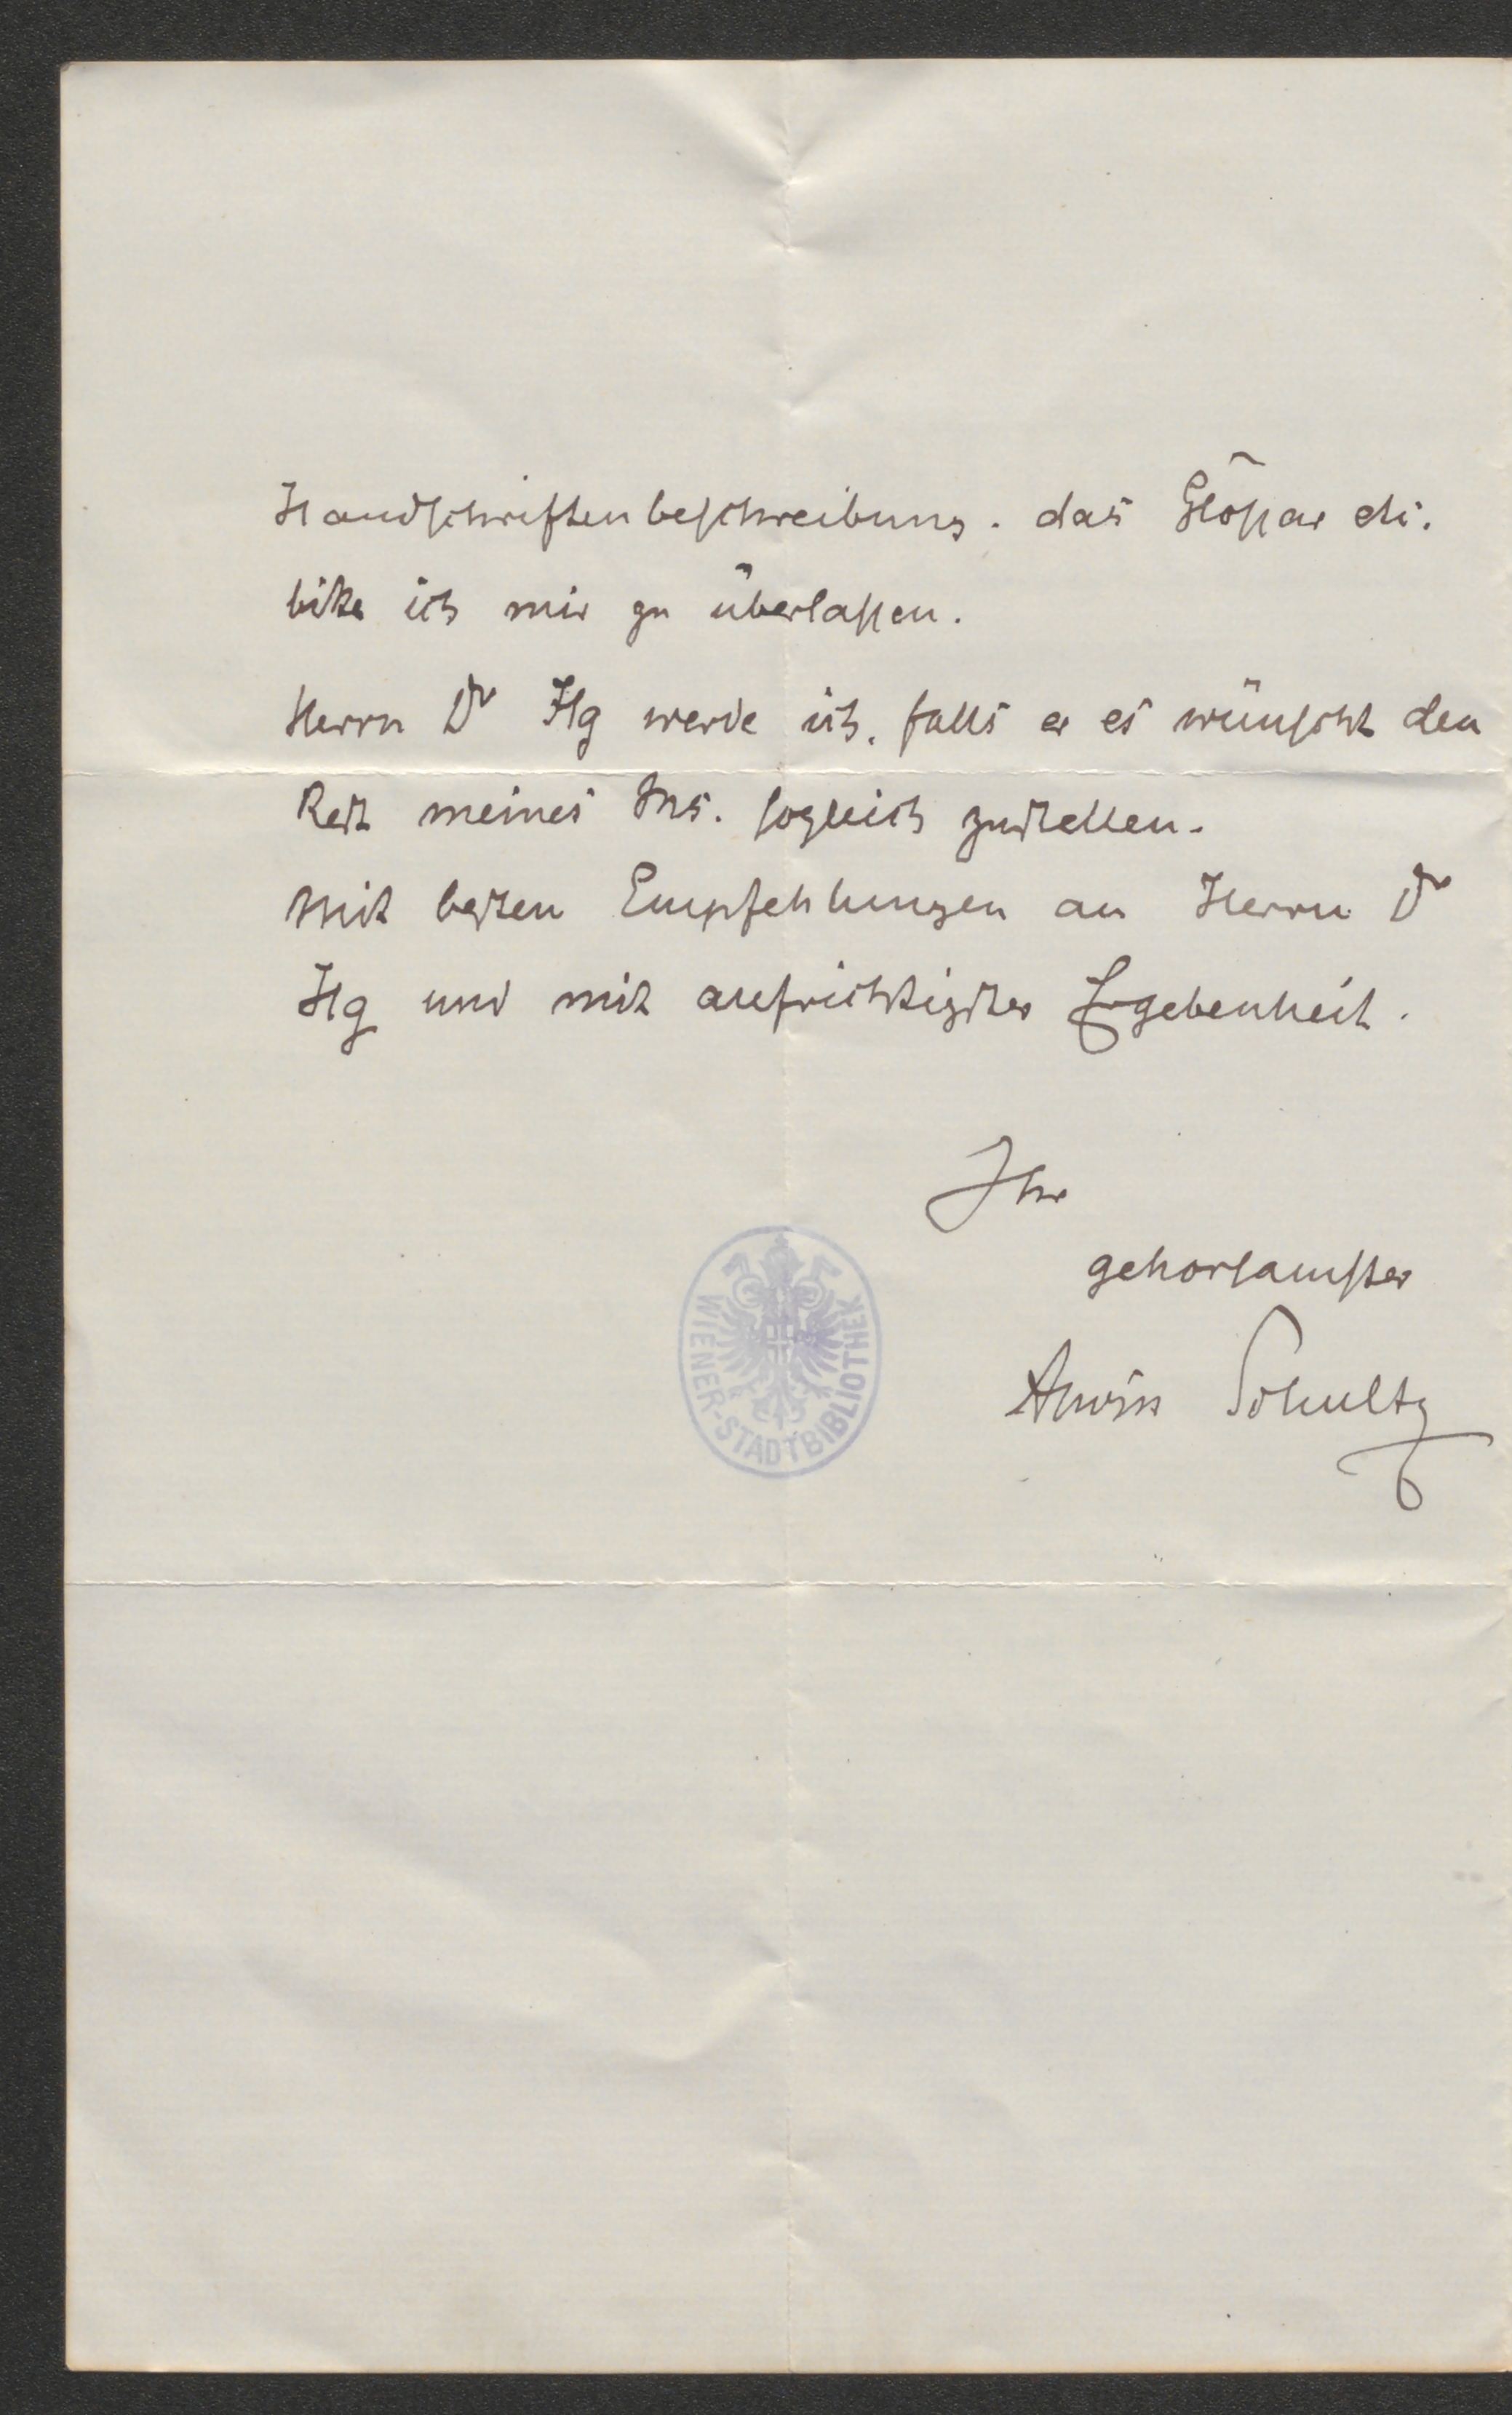 Handschriftenbeschreibung. das Gloßar etc.
bitte ich mir zu überlaßen.
Herrn Dr Ilg werde ich, falls er es wünscht den
Rest meines Ms. sogleich zustellen.
Mit besten Empfehlungen an Herrn Dr
Ilg und mit aufrichtigster Ergebenheit.
Ihr
gehorsamster
Alwin Schultz
WIENER-STADTBIBLIOTHEK